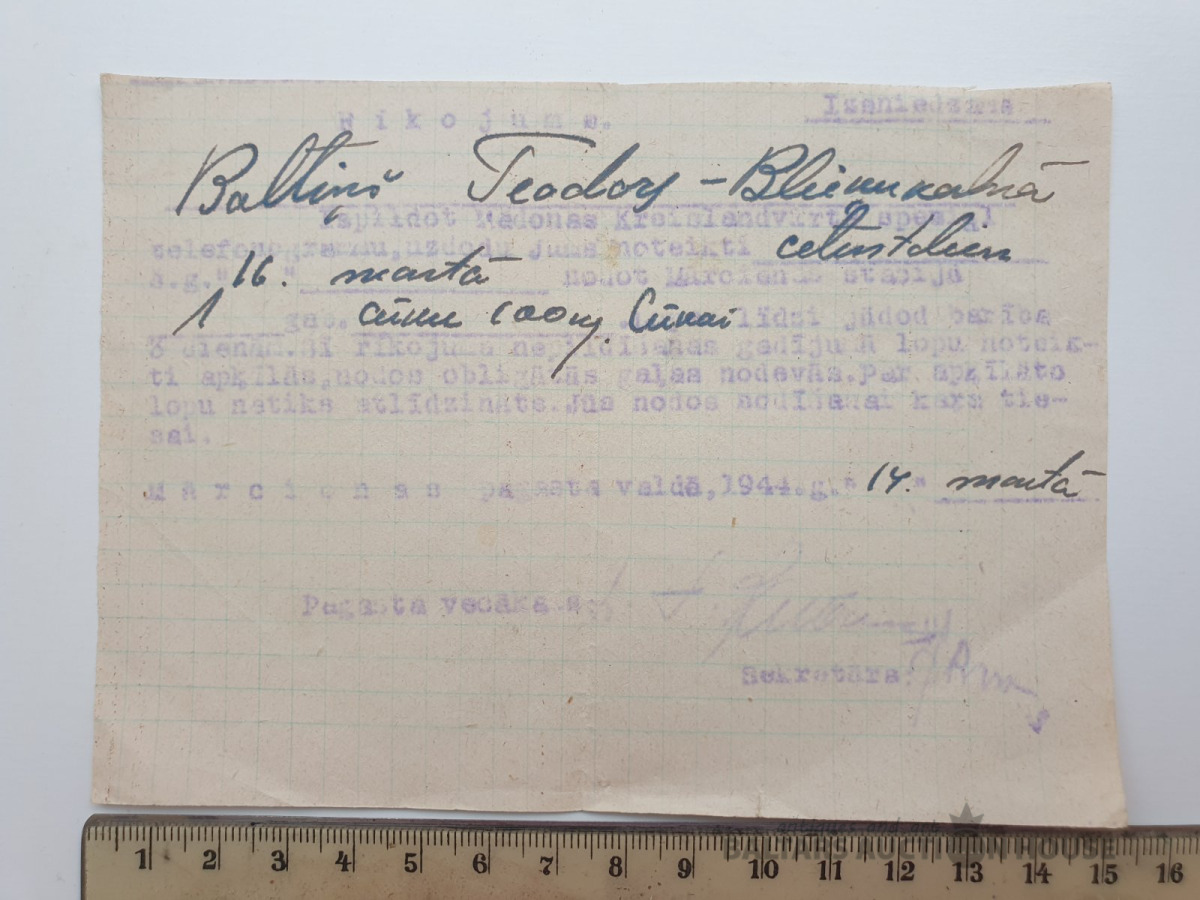 Izsniedzams
Rikojums.
Baltiņš Teodors - Blienukalnā
Izpildot Madonas Kreislandvirta speciāl
telefonogrammu, uzdodu Jums noteikti ceturtdien
š.g." 16. " martā nodot Mārcienas stacijā
1 gab. cūku 100 kg. Cūkai līdzi jādod barība
3 dienām. Šī rīkojuma nepildīšanas gadījumā lopu noteik-
ti apķīlās, nodos obligātās gaļas nodevās. Par apķīlāto
lopu netiks atlīdzināts. Jūs nodos sodīšanai kara tie-
sai.
Mārcienas pagasta valdē, 1944.g." 14. " martā
Pagasta vecākais:
Sekretārs:
antiques and art
BALTARS AUCTION HOUSE
1 2 3 4 5 6 7 8 9 10 11 12 13 14 15 16